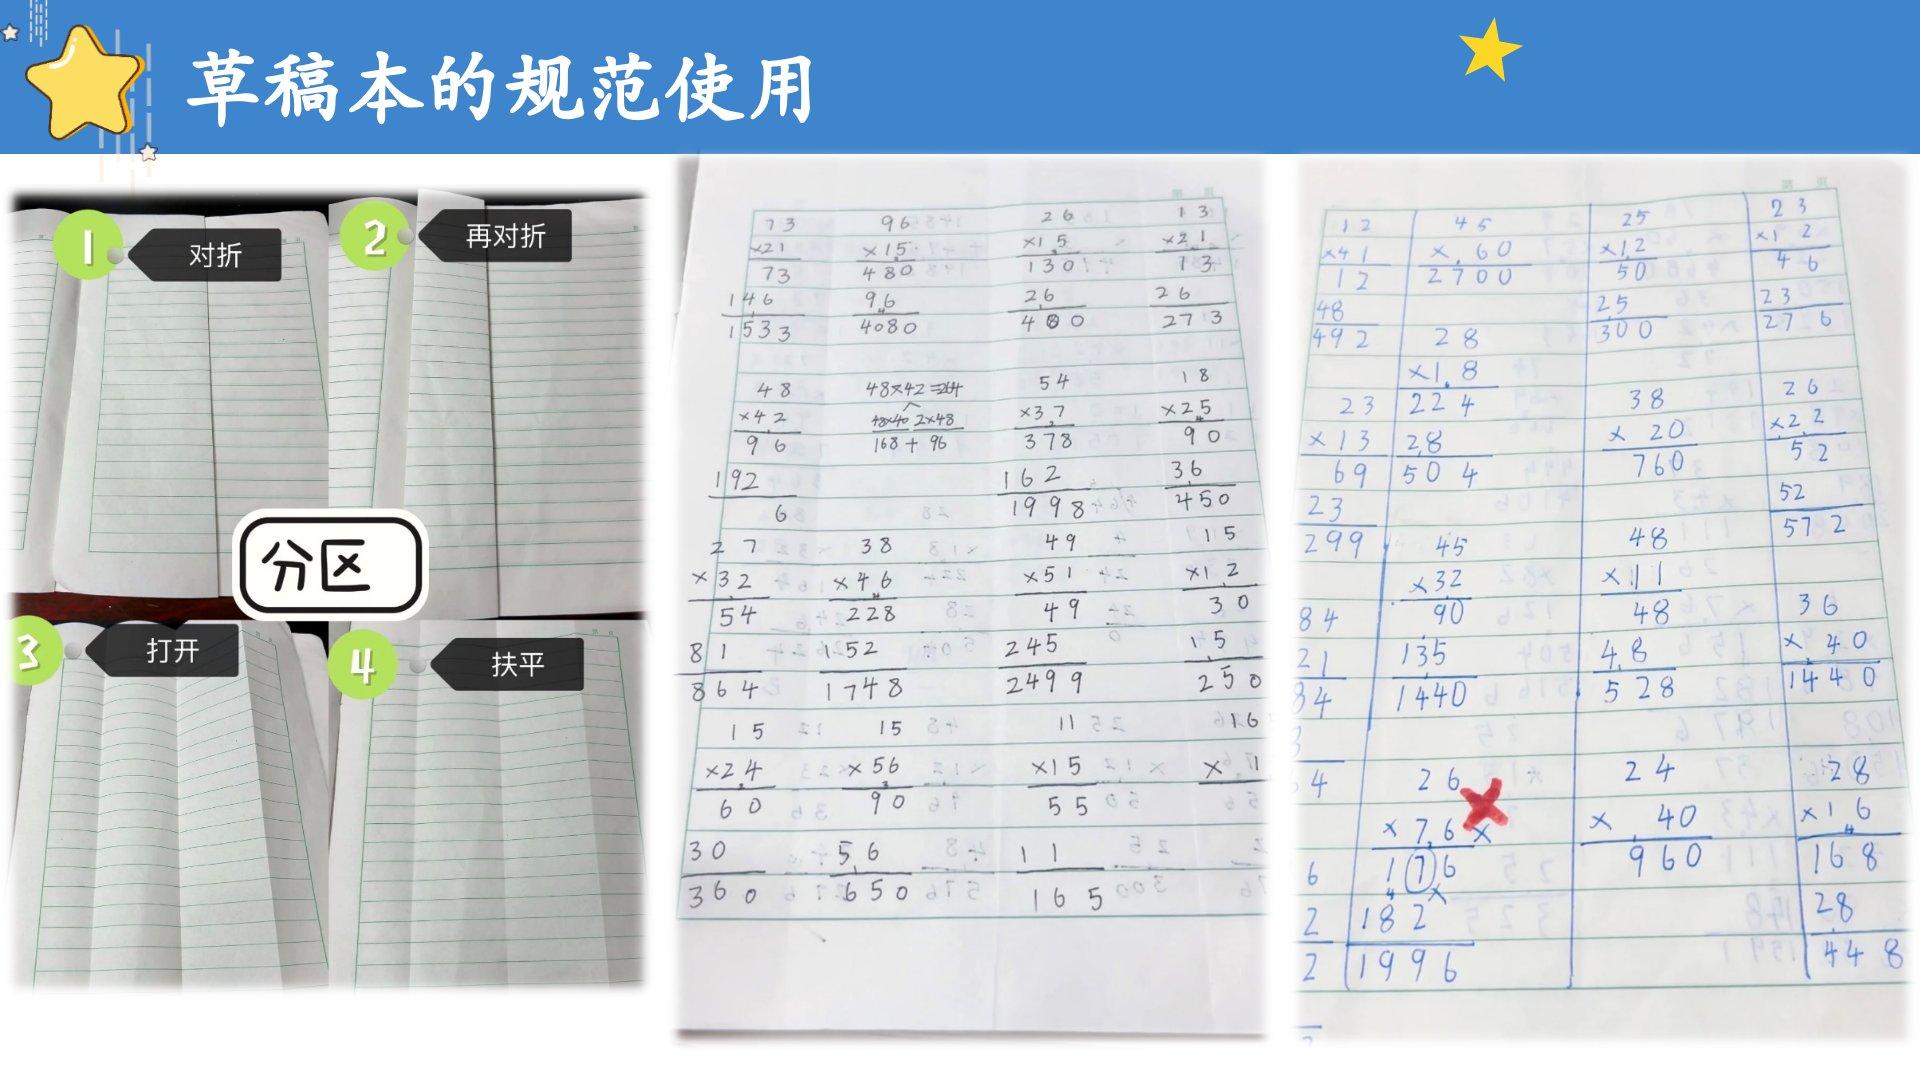 草稿本的规范使用
1 对折
2 再对折
分区
3 打开
4 扶平
73 96 26 13
×21 ×15 ×15 ×21
73 480 130 13
146 96 26 26
1533 4080 400 273
48 48×42=264 54 18
×42 48×40 2×48 ×37 ×25
96 168+96 378 90
192 162 36
6 1998 450
27 38 49 15
×32 ×46 ×51 ×12
54 228 49 30
81 152 245 15
864 1748 2499 250
15 15 11 16
×24 ×56 ×15 ×1
60 90 55
30 56 11
360 650 165
12 45 25 23
×41 ×60 ×12 ×12
12 2700 50 46
48 25 23
492 28 300 276
×1.8
23 224 38 26
×13 28 ×20 ×22
69 504 760 52
23 52
299 45 48 572
×32 ×11
84 90 48 36
21 135 48 ×40
84 1440 528 1440
3
4 26 24 28
×76 ×40 ×16
6 176 960 168
2 182 28
2 1996 448